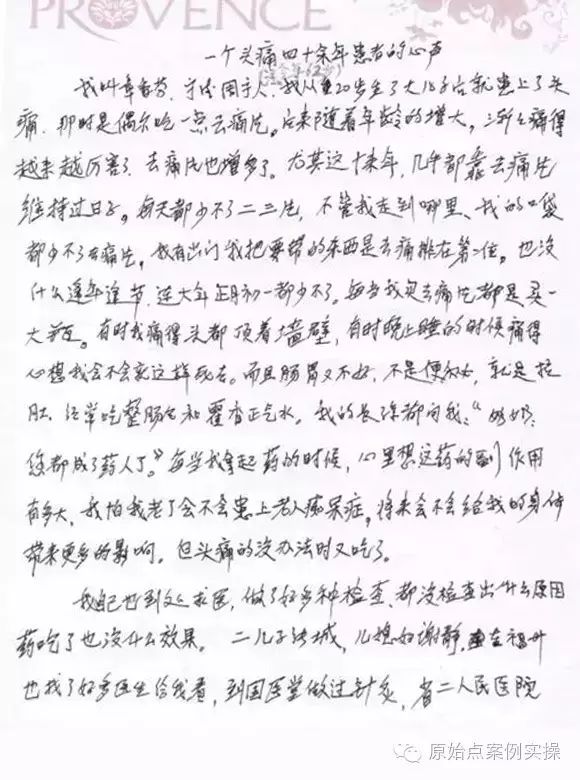 PROVENCE
一个头痛四十余年患者的心声
(至今年62岁)
我叫章香芬,宁德周宁人,我从20岁生了大儿子后就患上了头
痛,那时是偶尔吃一点去痛片。后来随着年龄的增大,头痛得
越来越厉害了,去痛片也增多了。尤其这十来年,几乎都靠去痛片
维持过日子。每天都少不了二三片,不管我走到哪里,我的口袋
都少不了去痛片。我有出门我把要带的东西是去痛排在第一位。也没
什么逢年逢节,连大年正月初一都少不了。每当我买去痛片都是买一
大瓶。有时我痛得头都顶着墙壁,有时晚上睡的时候痛得
心想我会不会就这样死去。而且肠胃又不好,不是便秘,就是拉
肚,经常吃整肠生和藿香正气水。我的长孙都问我:“奶奶,
您都成了药人了。”每当我拿起药的时候,心里想这药的副作用
有多大,我怕我老了会不会患上老人痴呆症,将来会不会给我的身体
带来更多的影响。但头痛的没办法时又吃了。
我自己也到处求医,做了好多种检查,都没检查出什么原因
药吃了也没什么效果。二儿子法城,儿媳妇谢静,在福州
也找了好多医生给我看,到国医堂做过针灸,省二人民医院
原始点案例实操